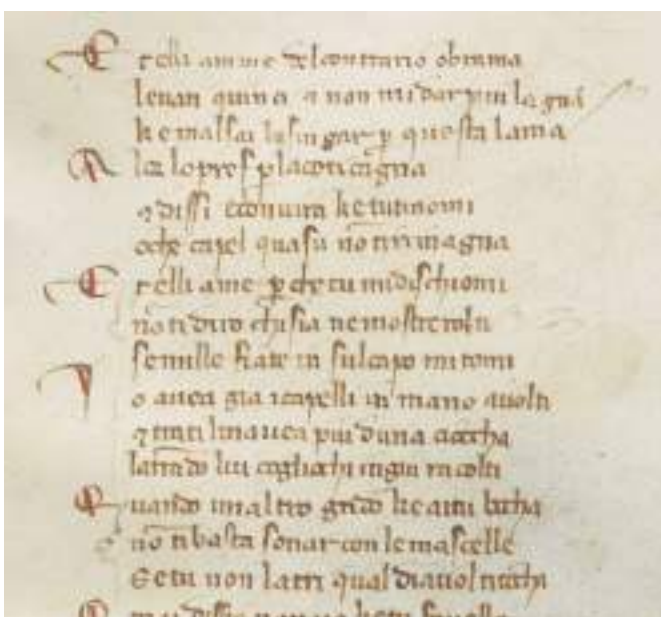 E t elli am me del contrario obrama
leuati quinci ⁊ non mi dar piu lagna
ke mal sai lusingar p̱ questa lama
A lor lo presi p̱ la coticagna
⁊ dissi econuirra ke tu ti nomi
o che capel quasu nō ti rimagna
E t elli a me p̱che tu mi dischiomi
nō ti diro chi sia ne mosterolti
se mille fiate in sul capo mi tomi
I o auea gia i capelli in mano auolti
⁊ tratti linauea piu duna ciocha
latrādo lui cogliochi ingiu racolti
Q uando unaltro grido ke aitu bocha
nō ti basta sonar con le mascelle
Se tu non latri qual diauol ti tocha